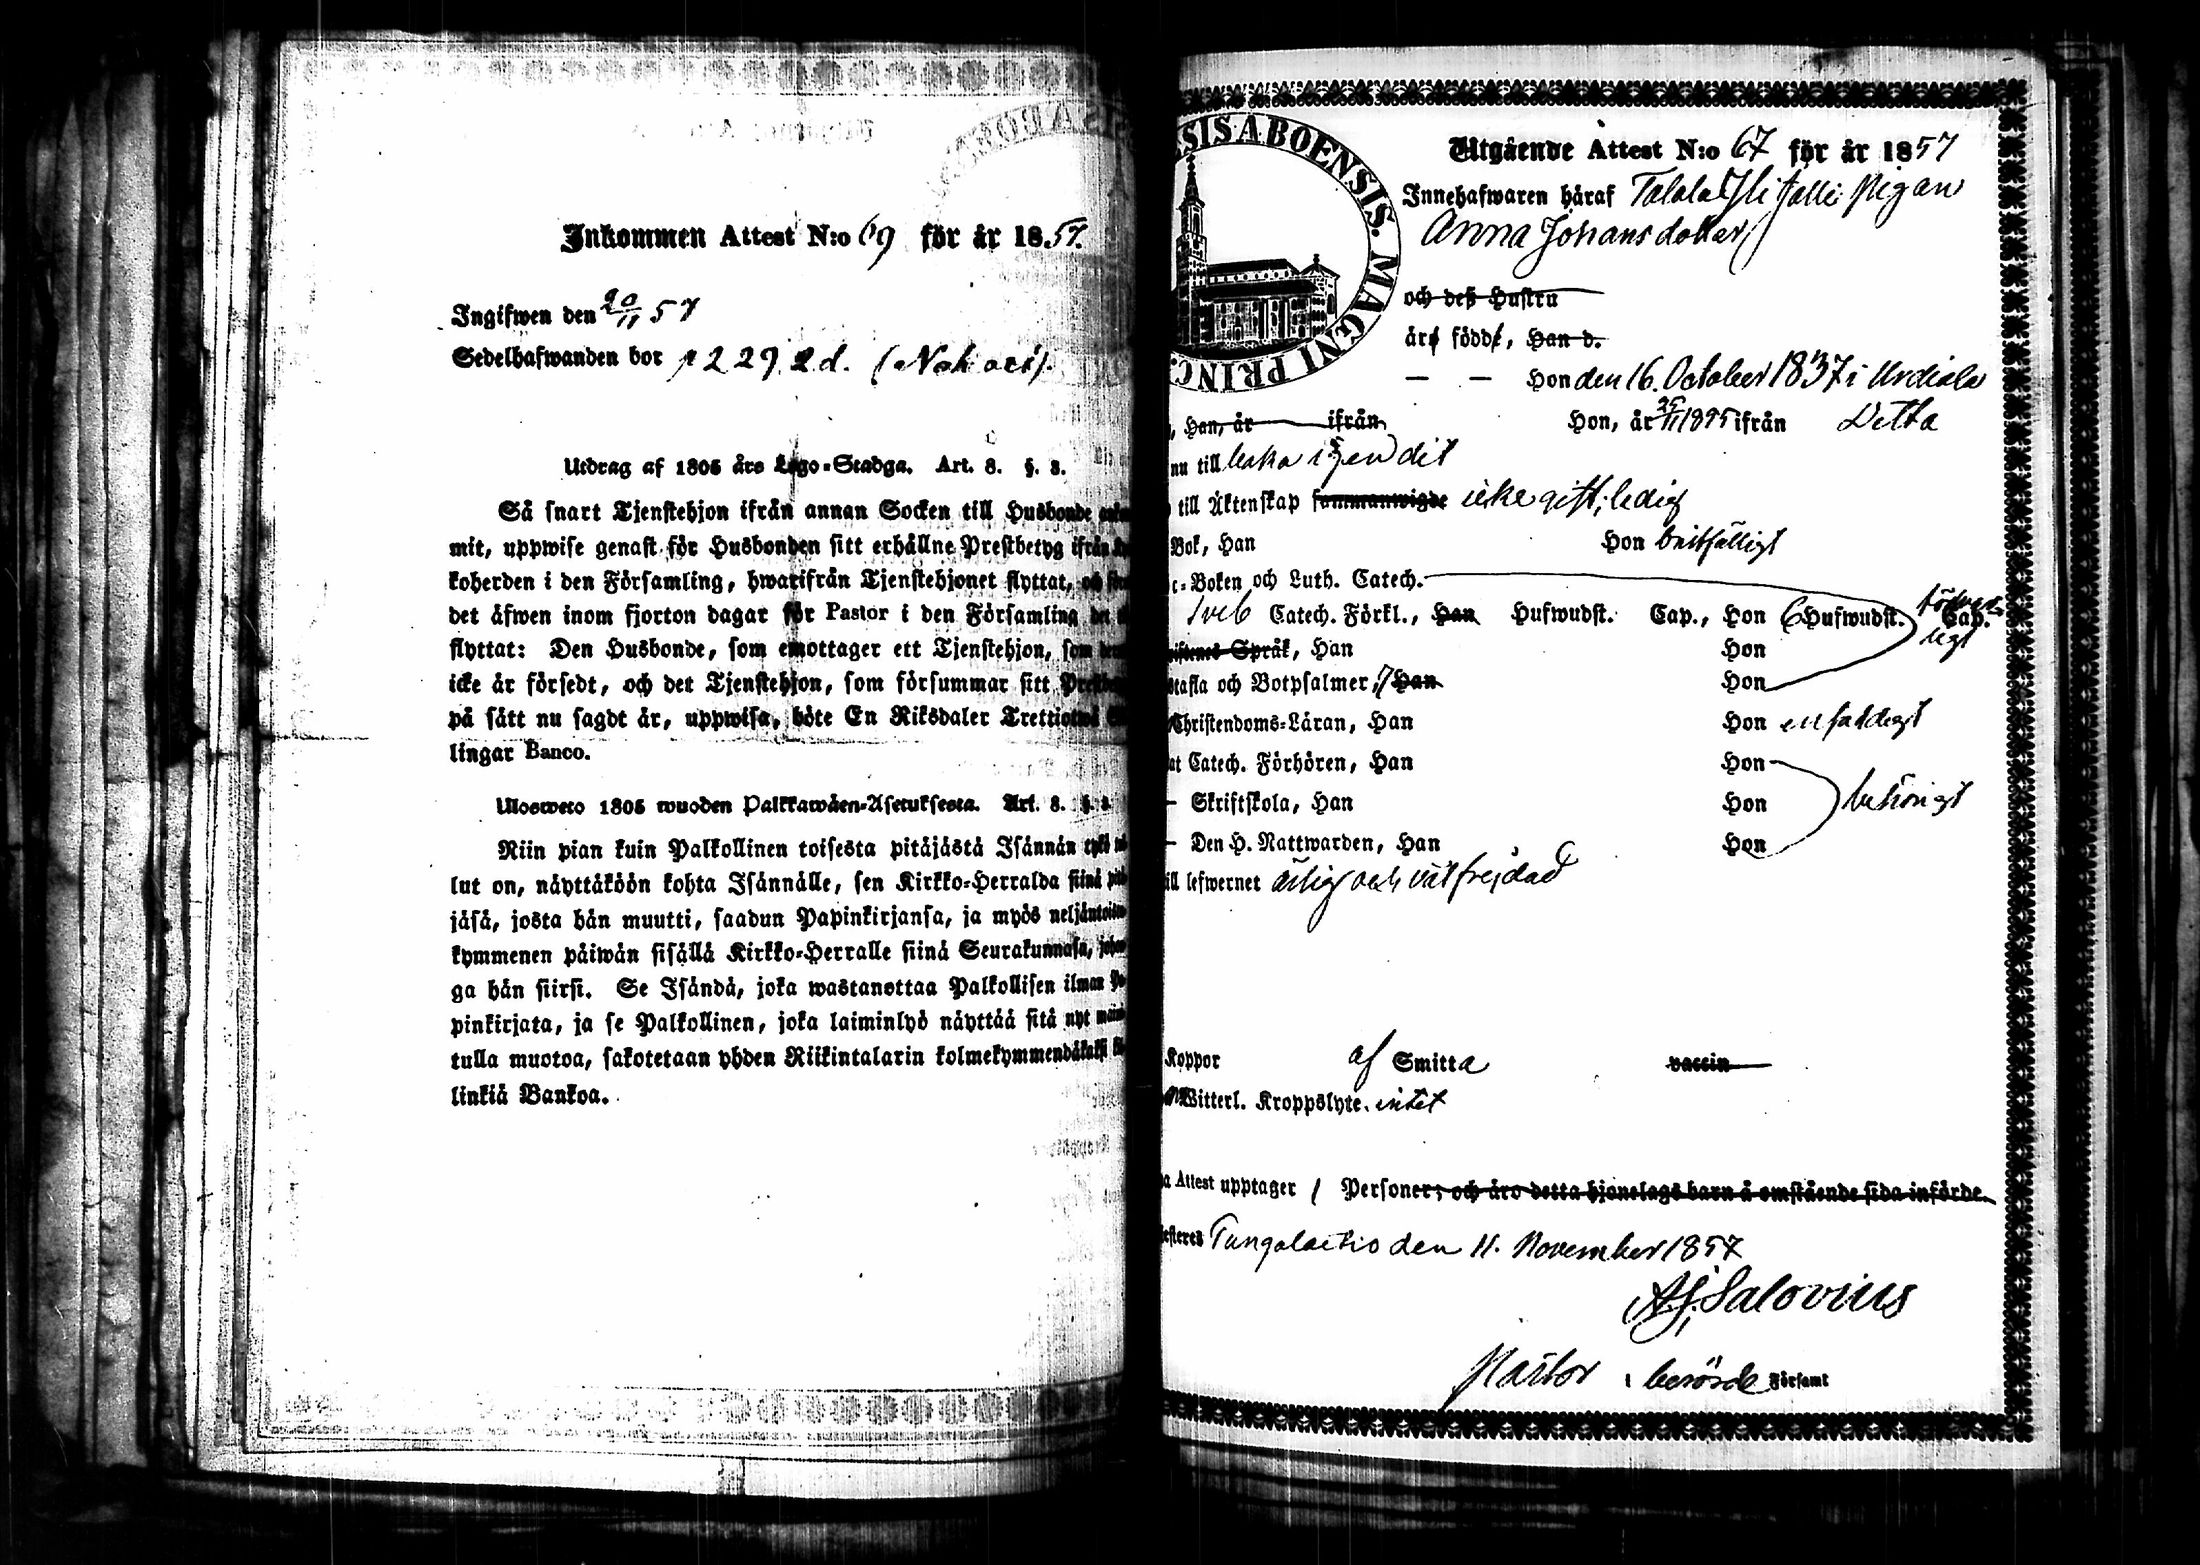 Inkommen Attest N:o 69 för år 1857.
Ingifwen den 20/11 57
Sedelhafwanden bor p 229 2 d. (Nohari).
Utdrag af 1805 års Lego-Stadga. Art. 8. §. 3.
Så snart Tjenstehjon ifrån annan Socken till Husbonde
mit, uppwise genast för Husbonden sitt erhållne Prestbetyg ifrån
koherden i den Församling, hwarifrån Tjenstehjonet flyttat, och
det äfwen inom fjorton dagar för Pastor i den Församling det
flyttat: Den Husbonde, som emottager ett Tjenstehjon, som
icke är försedt, och det Tjenstehjon, som försummar sitt
på sätt nu sagdt är, uppwisa, böte En Riksdaler Trettiotwå
lingar Banco.
Ulosweto 1805 wuoden Palkkawäen-Asetuksesta. Art. 8. §. 3.
Niin pian kuin Palkollinen toisesta pitäjästä Isännän tykö
lut on, näyttäköön kohta Isännälle, sen Kirkko-Herralda siinä
jäsä, josta hän muutti, saadun Papinkirjansa, ja myös neljäntoista
kymmenen päiwän sisällä Kirkko-Herralle siinä Seurakunnasa, johon
ga hän siirsi. Se Isändä, joka wastanottaa Palkollisen ilman
pinkirjata, ja se Palkollinen, joka laiminlyö näyttää sitä nyt
tulla muotoa, sakotetaan yhden Riikintalarin kolmekymmendäkaksi
linkiä Bankoa.
SIS ABOENSIS. MAGNI PRINC.
Utgående Attest N:o 67 för år 1857
Innehafwaren häraf Talala Pigan
Anna Johansdotter
och deß Hustru
är född, Han d.
— — Hon den 16. October 1837 i Urdiala
, Han, år ifrån Hon, år 1855 ifrån Detta
nu till baka igen dit
till Äktenskap sammanwigde icke gift; ledig
Bok, Han Hon
c-Boken och Luth. Catech.
Catech. Förkl., Han Hufwudst. Cap., Hon 6 Hufwudst. Cap.
Språk, Han Hon
tafla och Botpsalmer, 7 Han Hon
Christendoms-Läran, Han Hon enfaldigt
at Catech. Förhören, Han Hon
— Skriftskola, Han Hon behörigt
— Den H. Nattwarden, Han Hon
ill lefwernet ärlig och välfrejdad
Koppor af Smitta vaccin
Witterl. Kroppslyte. intet
a Attest upptager 1 Personer; och äro detta hjonelags barn å omstående sida införde.
esteres Tungelaetio den 11. November 1857
A. J. Salovius
Pastor i berörde Församl